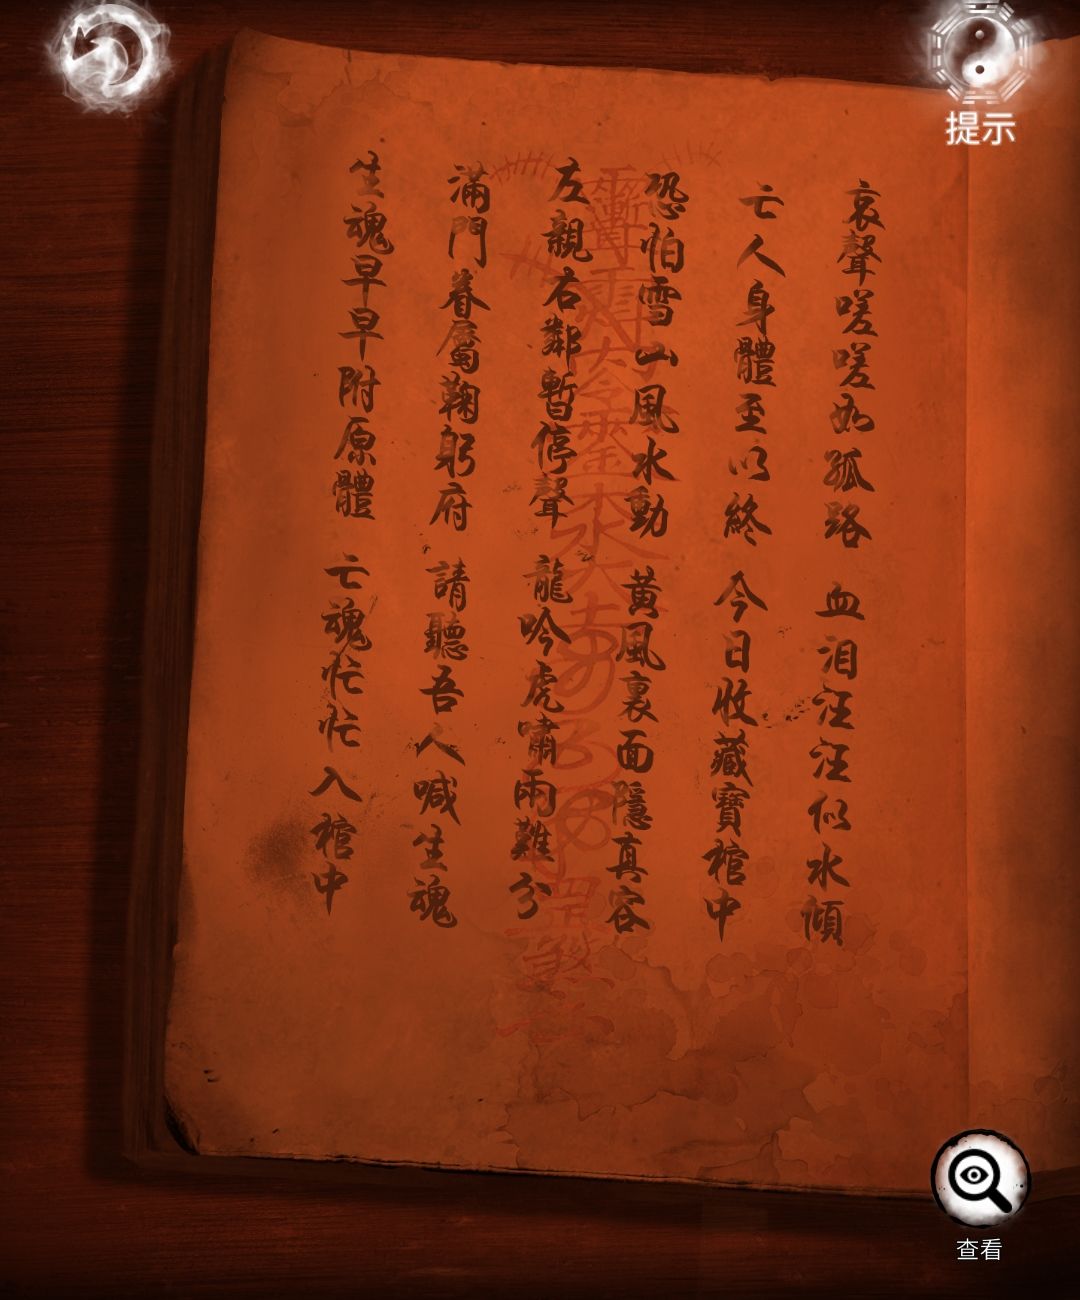 提示
哀聲嗟嗟如孤路 血泪汪汪似水傾
亡人身體至以終 今日收藏寶棺中
恐怕雪山風水動 黃風裏面隱真容
左親右鄰暫停聲 龍吟虎嘯兩難分
滿門眷屬鞠躬府 請聽吾人喊生魂
生魂早早附原體 亡魂忙忙入棺中
查看